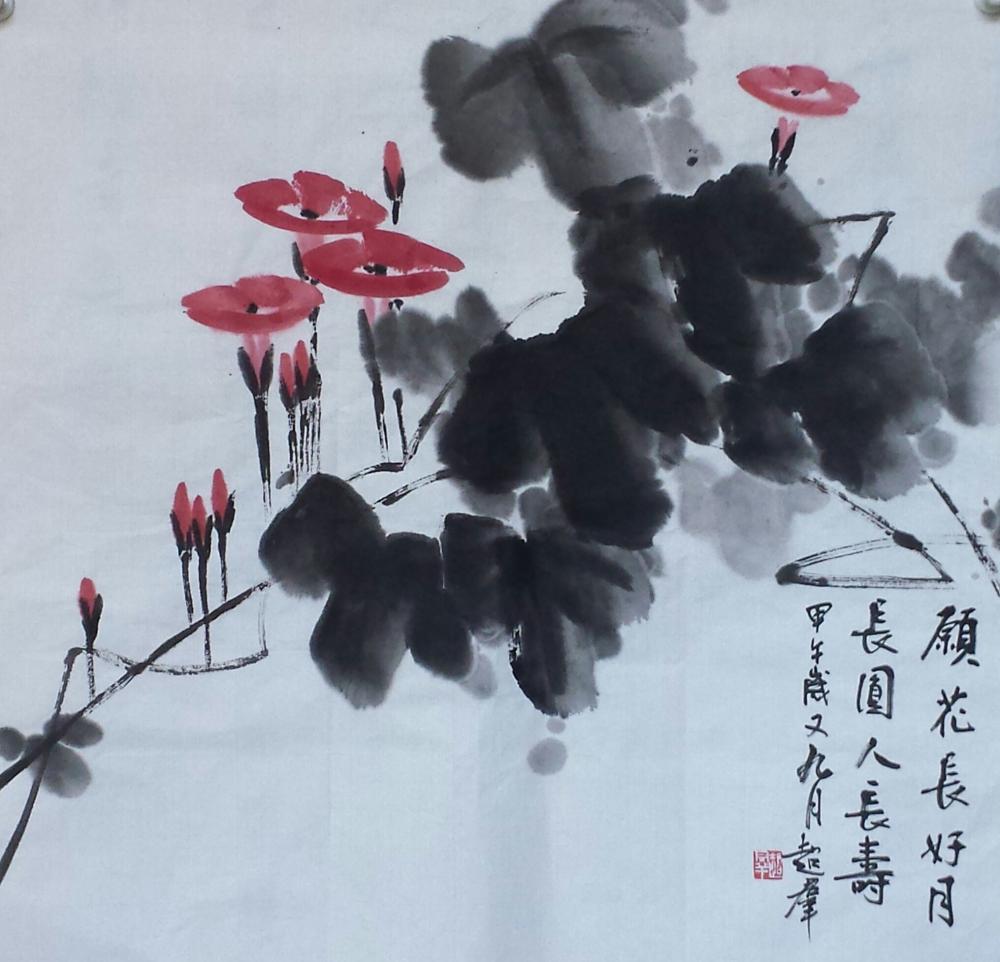 願花長好月
長圓人長壽
甲午歲又九月超羣